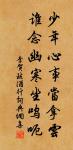 少年心事當拿雲
誰念幽寒坐嗚呃
李賀致酒行詩句